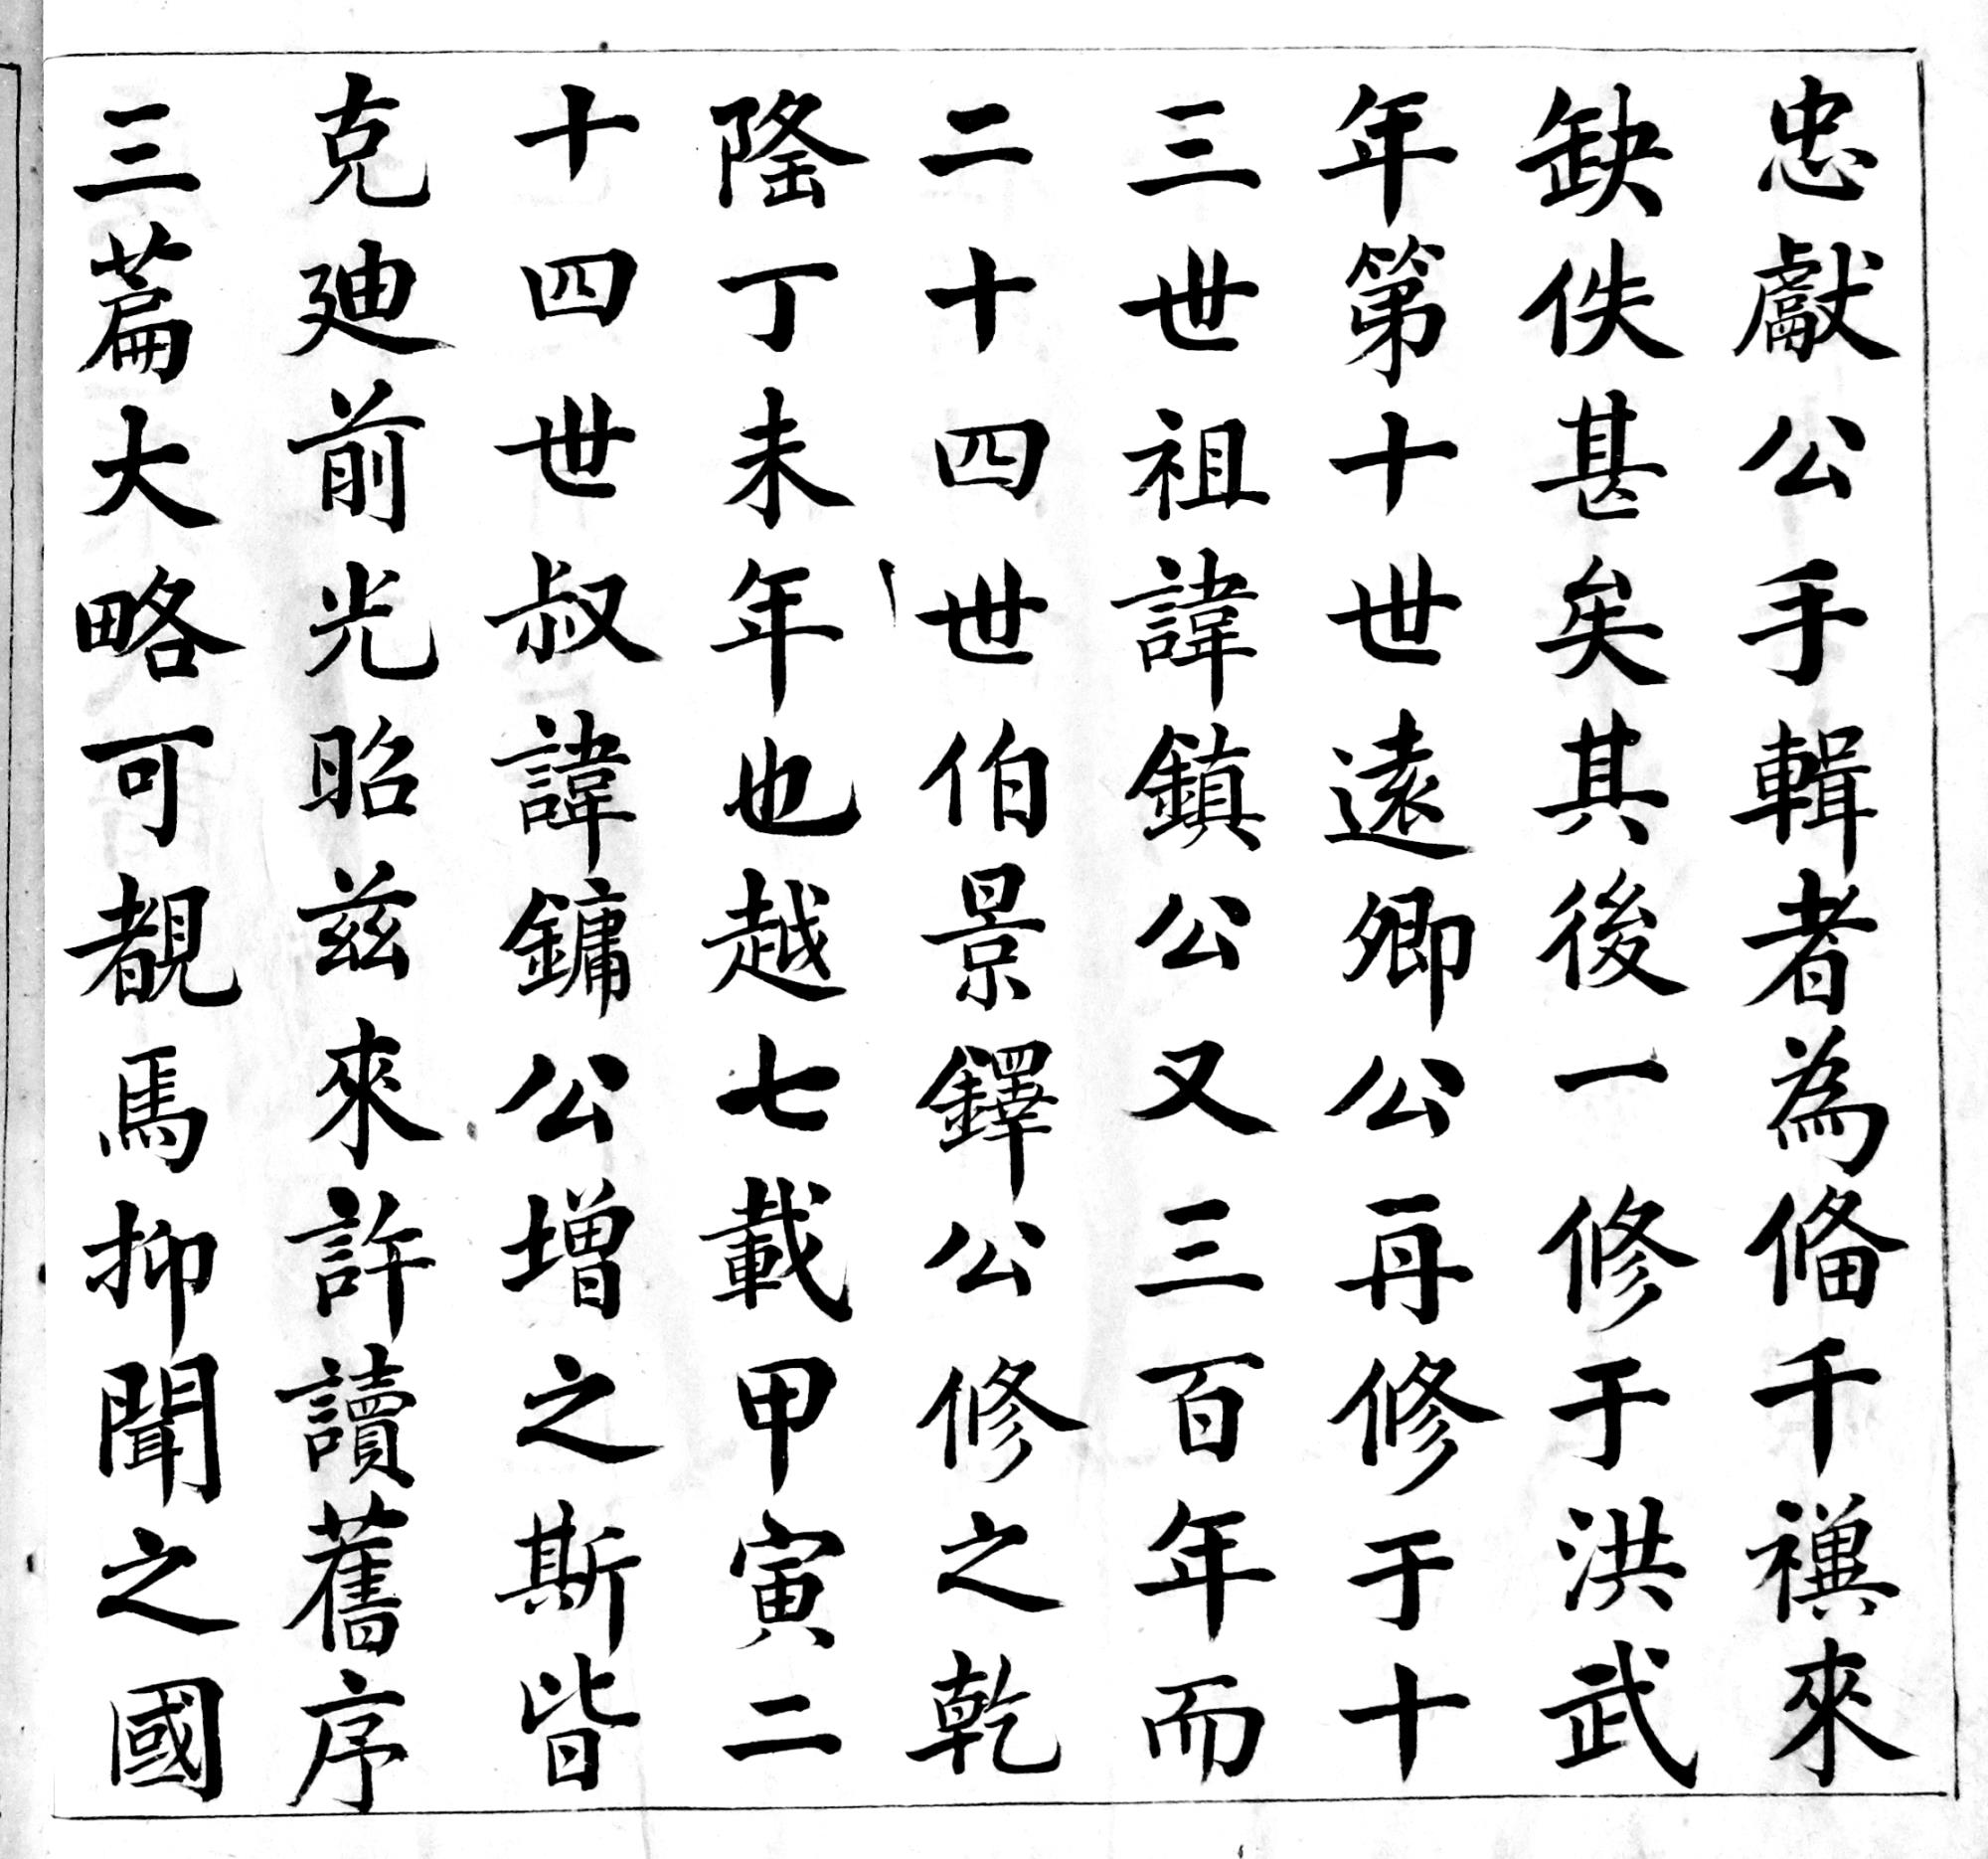 忠獻公手輯者為俻千禩來
缺佚甚矣其後一修于洪武
年第十世遠卿公再修于十
三世祖諱鎮公又三百年而
二十四世伯景鐸公修之乾
隆丁未年也越七載甲寅二
十四世叔諱鏞公增之斯皆
克廸前光昭兹來許讀舊序
三篇大略可覩焉抑聞之國